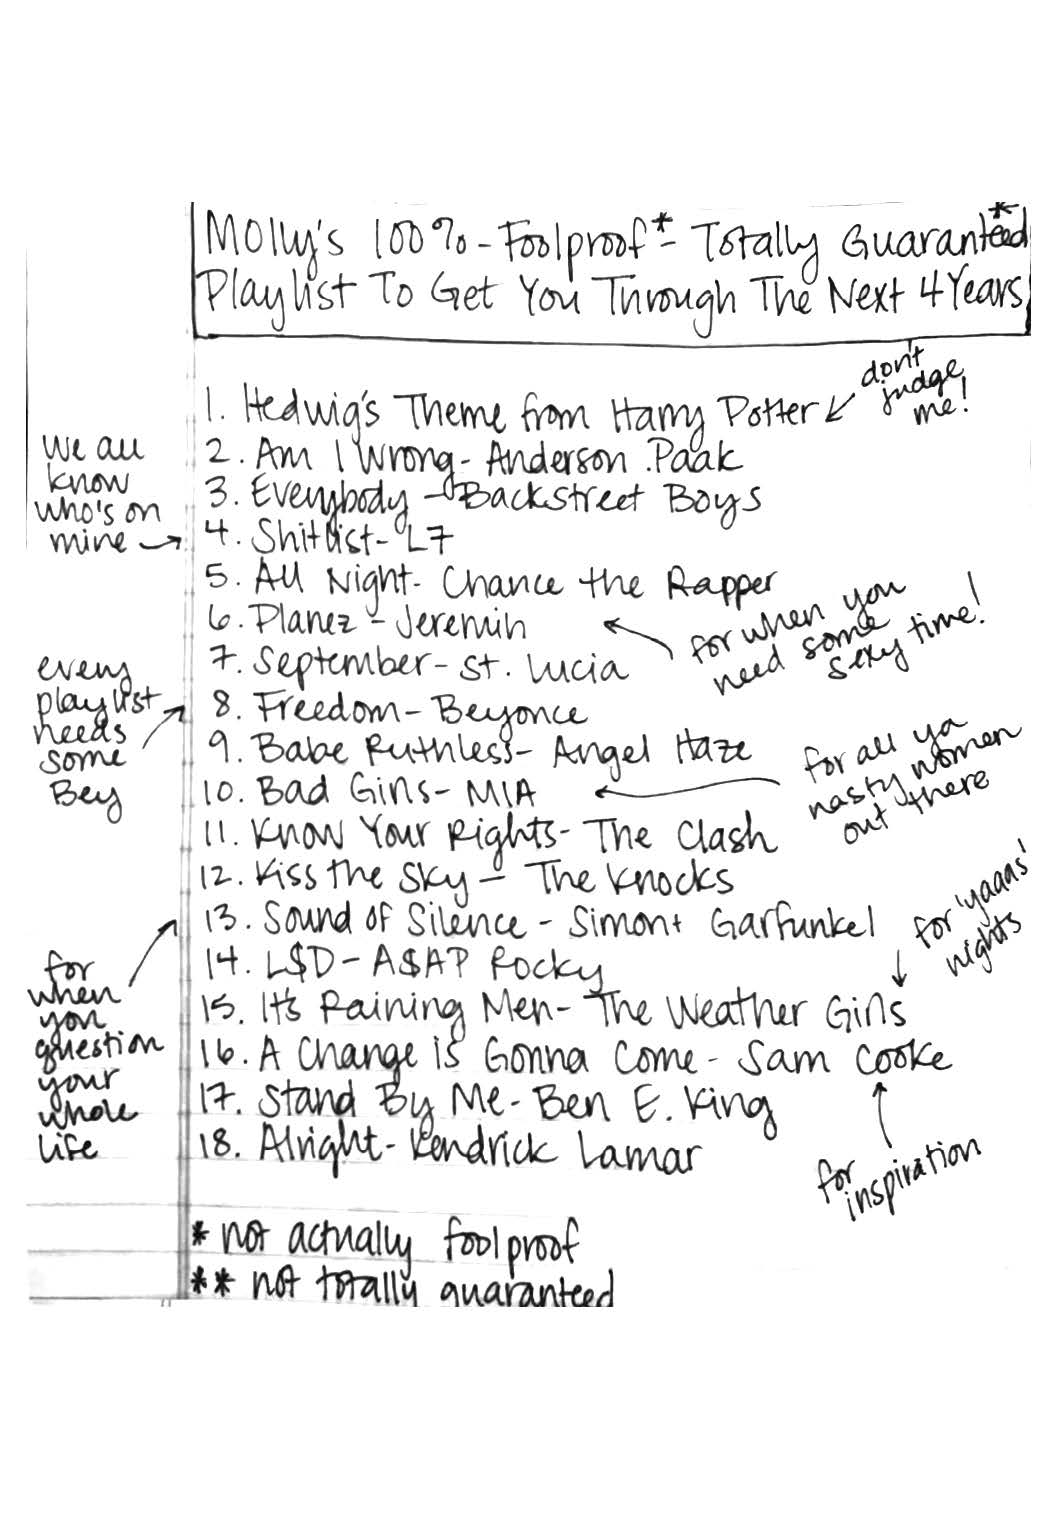 Molly's 100%-Foolproof*- Totally Guaranteed*
Playlist To Get You Through The Next 4 Years
don't
judge
me!
1. Hedwig's Theme from Harry Potter
2. Am I Wrong- Anderson .Paak
3. Everybody - Backstreet Boys
we all
know
who's on
mine
4. Shitlist- L7
5. All Night- Chance the Rapper
6. Planez - Jeremih
for when you
need some
sexy time!
7. September- St. Lucia
every
playlist
needs
some
Bey
8. Freedom- Beyonce
9. Babe Ruthless- Angel Haze
10. Bad Girls- MIA
for all ya
nasty women
out there
11. Know Your Rights- The Clash
12. Kiss the Sky - The Knocks
13. Sound of Silence - Simon + Garfunkel
for
when
you
question
your
whole
life
14. L$D- A$AP Rocky
for 'yaaas'
nights
15. It's Raining Men- The Weather Girls
16. A Change is Gonna Come- Sam Cooke
for
inspiration
17. Stand By Me- Ben E. King
18. Alright- Kendrick Lamar
* not actually foolproof
** not totally guaranteed